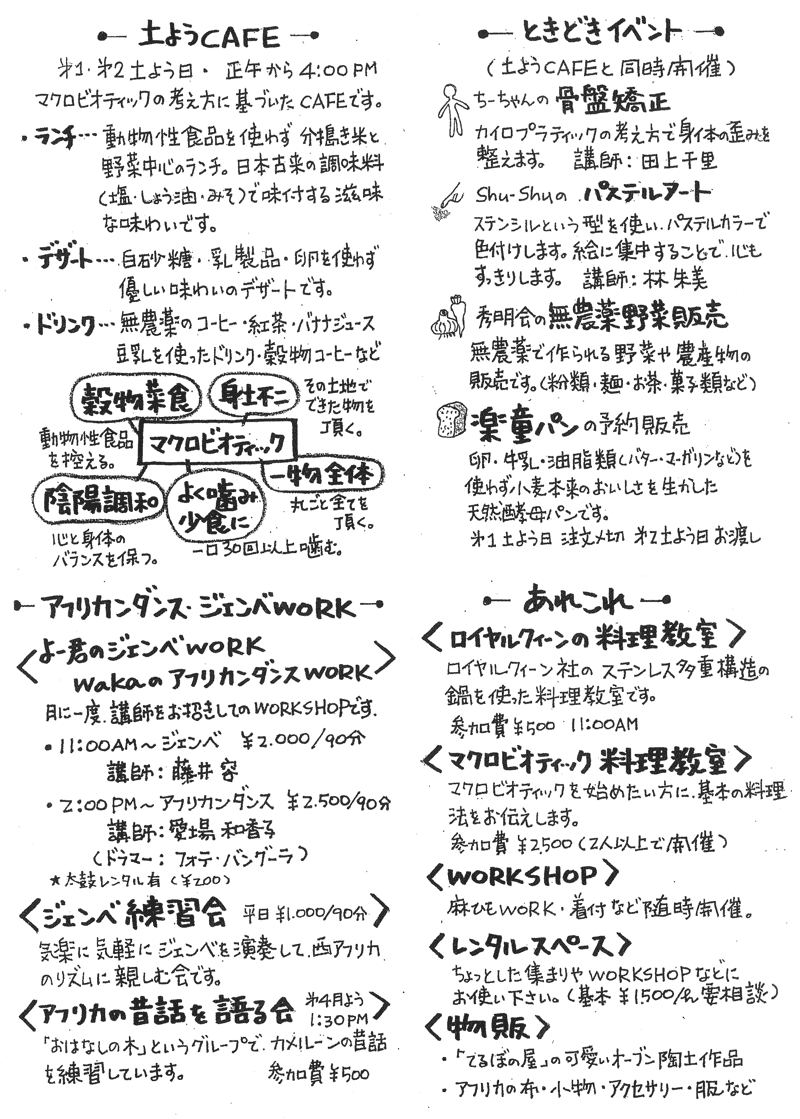 土ようCAFE
第1・第2土よう日・ 正午から4:00PM
マクロビオティックの考え方に基づいたCAFEです。
・ランチ… 動物性食品を使わず 分搗き米と
野菜中心のランチ。日本古来の調味料
(塩・しょう油・みそ)で味付する滋味
な味わいです。
・デザート… 白砂糖・乳製品・卵を使わず
優しい味わいのデザートです。
・ドリンク… 無農薬のコーヒー・紅茶・バナナジュース
豆乳を使ったドリンク・穀物コーヒーなど
穀物菜食
身土不二
その土地で
できた物を
頂く。
動物性食品
を控える。
マクロビオティック
一物全体
丸ごと全てを
頂く。
陰陽調和
心と身体の
バランスを保つ。
よく噛み
少食に
一口30回以上噛む。
アフリカンダンス・ジェンベWORK
〈よー君のジェンベWORK
wakaのアフリカンダンスWORK〉
月に一度、講師をお招きしてのWORKSHOPです。
・11:00AM〜ジェンベ ¥2.000/90分
講師:藤井容
・2:00PM〜アフリカンダンス ¥2.500/90分
講師:愛場和香子
(ドラマー:フォテ・バングーラ)
★太鼓レンタル有(¥200)
〈ジェンベ練習会 平日¥1.000/90分〉
気楽に気軽にジェンベを演奏して、西アフリカ
のリズムに親しむ会です。
〈アフリカの昔話を語る会 第4月よう
1:30PM〉
「おはなしの木」というグループで、カメルーンの昔話
を練習しています。 参加費¥500
ときどきイベント
(土ようCAFEと同時開催)
ちーちゃんの 骨盤矯正
カイロプラティックの考え方で身体の歪みを
整えます。 講師:田上千里
Shu-Shuの パステルアート
ステンシルという型を使い、パステルカラーで
色付けします。絵に集中することで、心も
すっきりします。 講師:林朱美
秀明会の無農薬野菜販売
無農薬で作られる野菜や農産物の
販売です。(粉類・麺・お茶・菓子類など)
楽童パンの予約販売
卵・牛乳・油脂類(バター・マーガリンなど)を
使わず小麦本来のおいしさを生かした
天然酵母パンです。
第1土よう日 注文〆切 第2土よう日お渡し
あれこれ
〈ロイヤルクィーンの料理教室〉
ロイヤルクィーン社の ステンレス多重構造の
鍋を使った料理教室です。
参加費¥500 11:00AM
〈マクロビオティック料理教室〉
マクロビオティックを始めたい方に、基本の料理
法をお伝えします。
参加費¥2,500(2人以上で開催)
〈WORKSHOP〉
麻ひもWORK・着付など随時開催。
〈レンタルスペース〉
ちょっとした集まりやWORKSHOPなどに
お使い下さい。(基本¥1500/h 要相談)
〈物販〉
・「てるぼの屋」の可愛いオーブン陶土作品
・アフリカの布・小物・アクセサリー・服など